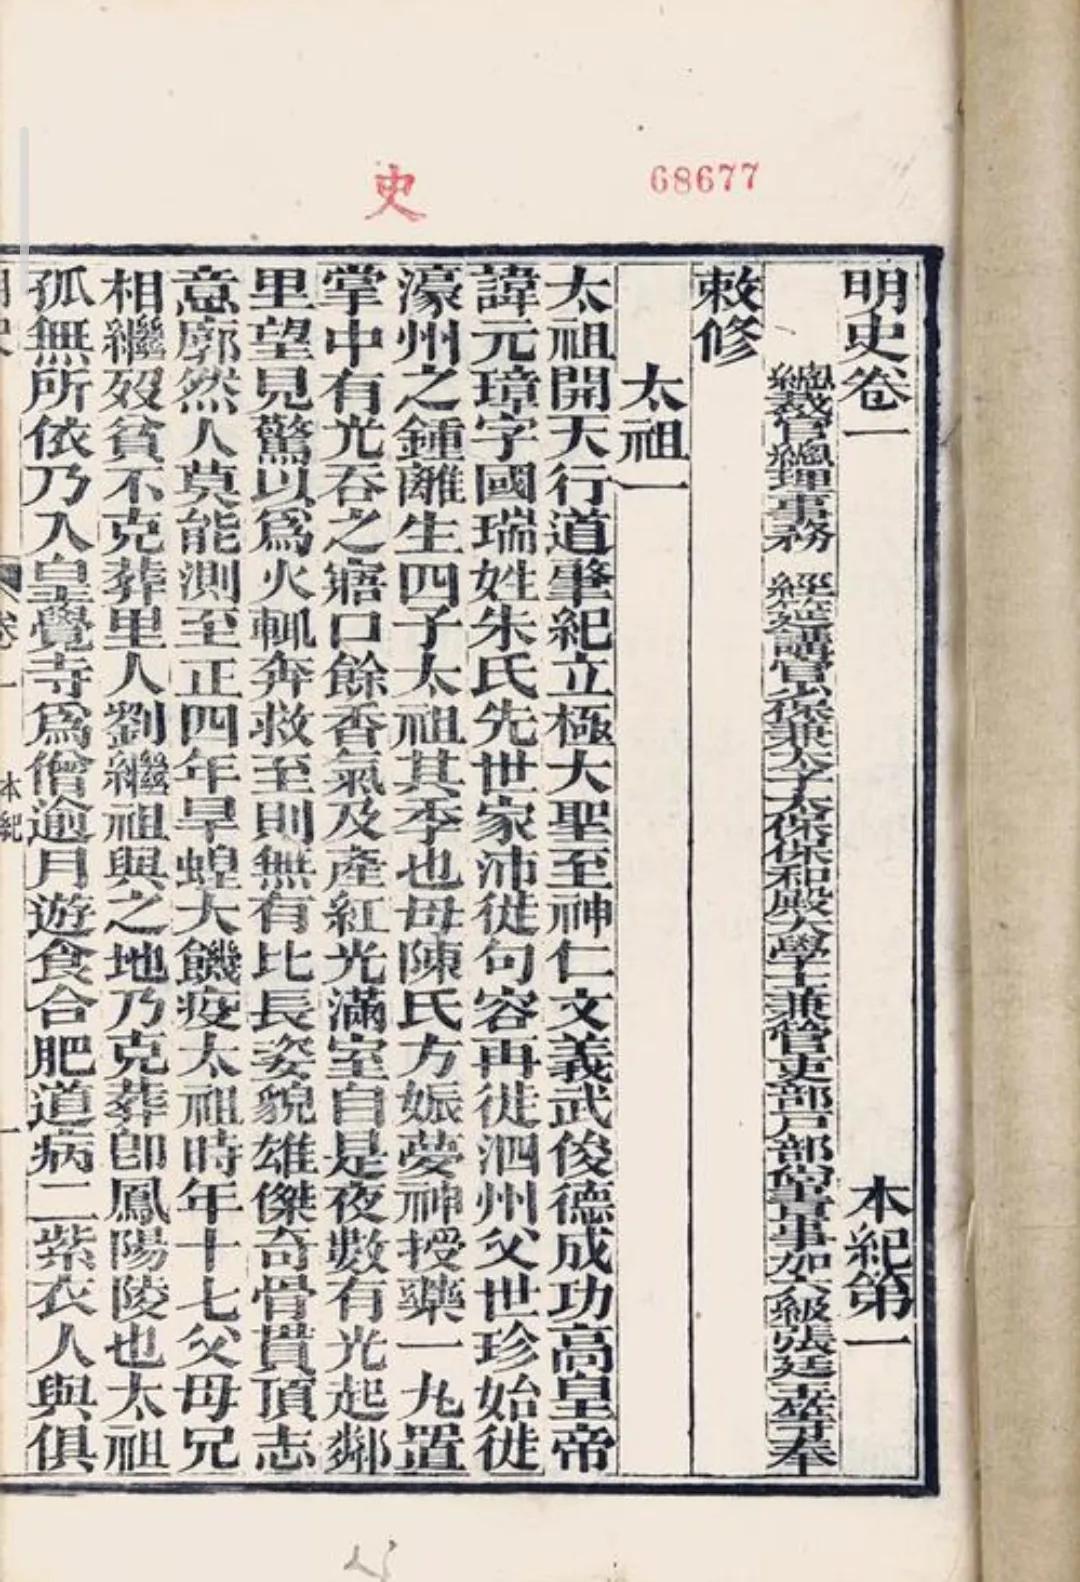 史
68677
明史卷一 本紀第一
總裁官總理事務 經筵講官少保兼太子太保保和殿大學士兼管吏部戶部尚書事加六級張廷玉等奉
敕修
太祖一
太祖開天行道肇紀立極大聖至神仁文義武俊德成功高皇帝
諱元璋字國瑞姓朱氏先世家沛徙句容再徙泗州父世珍始徙
濠州之鍾離生四子太祖其季也母陳氏方娠夢神授藥一丸置
掌中有光吞之寤口餘香氣及產紅光滿室自是夜數有光起鄰
里望見驚以為火輒奔救至則無有比長姿貌雄傑奇骨貫頂志
意廓然人莫能測至正四年旱蝗大饑疫太祖時年十七父母兄
相繼歿貧不克葬里人劉繼祖與之地乃克葬卽鳳陽陵也太祖
孤無所依乃入皇覺寺為僧逾月遊食合肥道病二紫衣人與俱
卷一 本紀 一